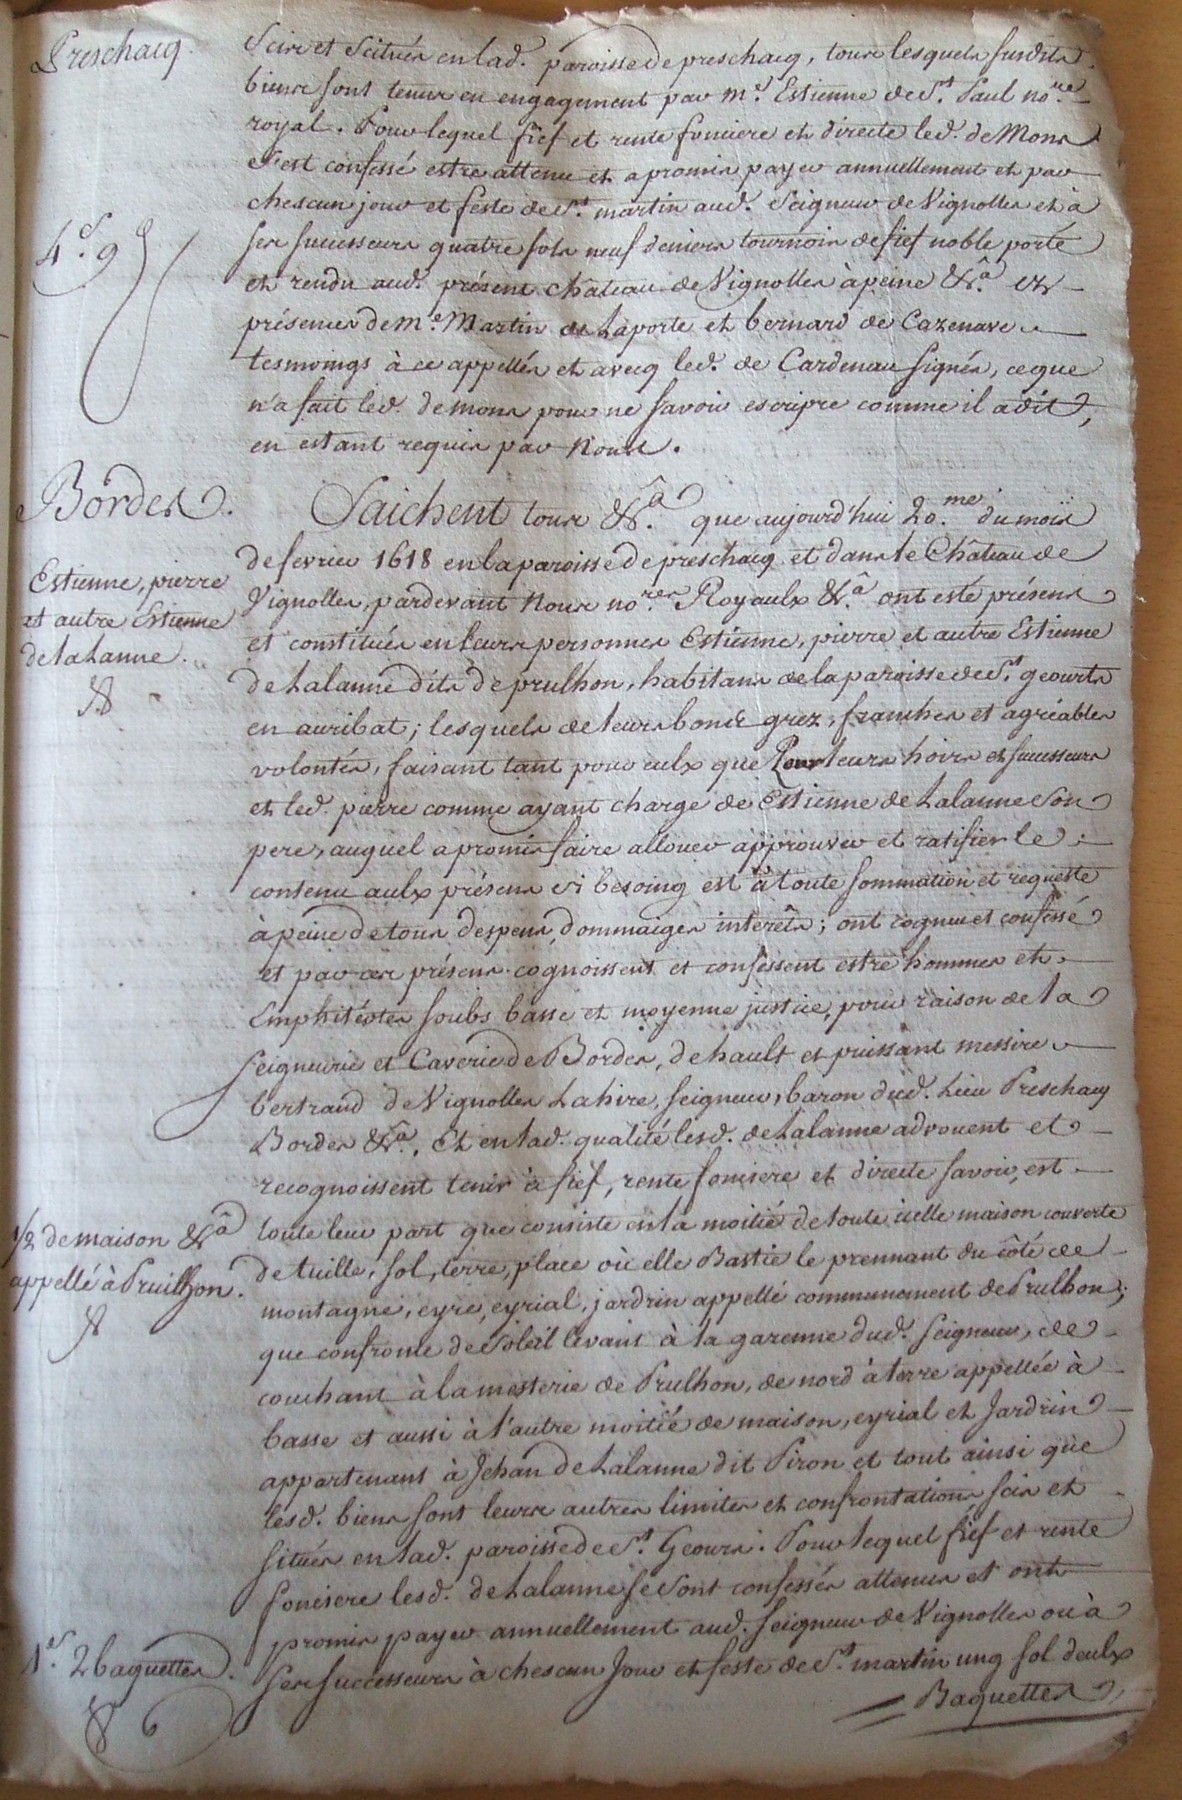 Preschacq.
Scis et Scitués en lad. paroisse de preschacq, tous lesquels susdits
biens sont tenus en engagement par Me. Estienne de St. Paul nore.
royal. Pour lequel fief et rente fonciere et directe led. de Mons
s'est confessé estre attenu et a promis payer annuellement et par
chescun jour et feste de St. martin aud. Seigneur de Vignolles et à
4s. 9d
ses successeurs quatre sols neuf deniers tournois de fief noble porté
et rendu aud. présent château de Vignolles à peine &ca. ez
présences de Me. Martin de Laporte et bernard de Cazenave
tesmoings à ce appellés et avecq led. de Cardenau signés, ce que
n'a fait led. de mons pour ne savoir escripre comme il a dit,
en estant requis par Nous.
Bordes.
Saichent tous &ca. que aujourd'hui 20.me du mois
de fevrier 1618 en la paroisse de preschacq et dans le Château de
Estienne, pierre
et autre Estienne
de Lalanne.
Vignolles, pardevant Nous nores. Royaulx &ca. ont esté présens
et constitués en leurs personnes Estienne, pierre et autre Estienne
de Lalanne dits de prulhon, habitans de la paroisse de St. geourts
en auribat; lesquels de leurs bons grez, franches et agréables
volontés, faisant tant pour eulx que Pour leurs hoirs et successeurs
et led. pierre comme ayant charge de Estienne de Lalanne son
pere, auquel a promis faire allouer approuver et ratifier le
contenu aulx présens si besoing est à toute sommation et requeste
à peine de tous despens, dommaiges interêts; ont cognu et confessé
et par ces présens cognoissent et confessent estre hommes et
Emphitéotes soubs basse et moyenne justice, pour raison de la
seigneurie et Caverie de Bordes, de hault et puissant messire
bertrand de Vignolles Lahire, seigneur, baron dud. Lieu Preschacq
Bordes &ca. Et en lad. qualité lesd. de Lalanne advouent et
recognoissent tenir à fief, rente fonciere et directe savoir, est
1/2 de maison &ca
appellé à Pruilhon.
toute leur part que consiste en la moitié de toute icelle maison couverte
de tuille, sol, terre, place où elle Bastie le prennant du côté de
montagne, eyre, eyrial, jardrin appellé communement de Prulhon;
que confronte de Soleil levant à la garenne dud. seigneur, de
couchant à la mesterie de Prulhon, de nord à terre appellée à
basse et aussi à l'autre moitié de maison, eyrial et Jardrin
appartenant à Jehan de Lalanne dit Piron et tout ainsi que
lesd. biens sont leurs autres limites et confrontations scis et
situés en lad. paroisse de St. Geours. Pour lequel fief et rente
fonciere lesd. de Lalanne se sont confessés attenus et ont
promis payer annuellement aud. seigneur de Vignolles ou à
1s. 2 baquettes.
ses successeurs à chescun Jour et feste de St. martin ung sol deulx
Baquettes